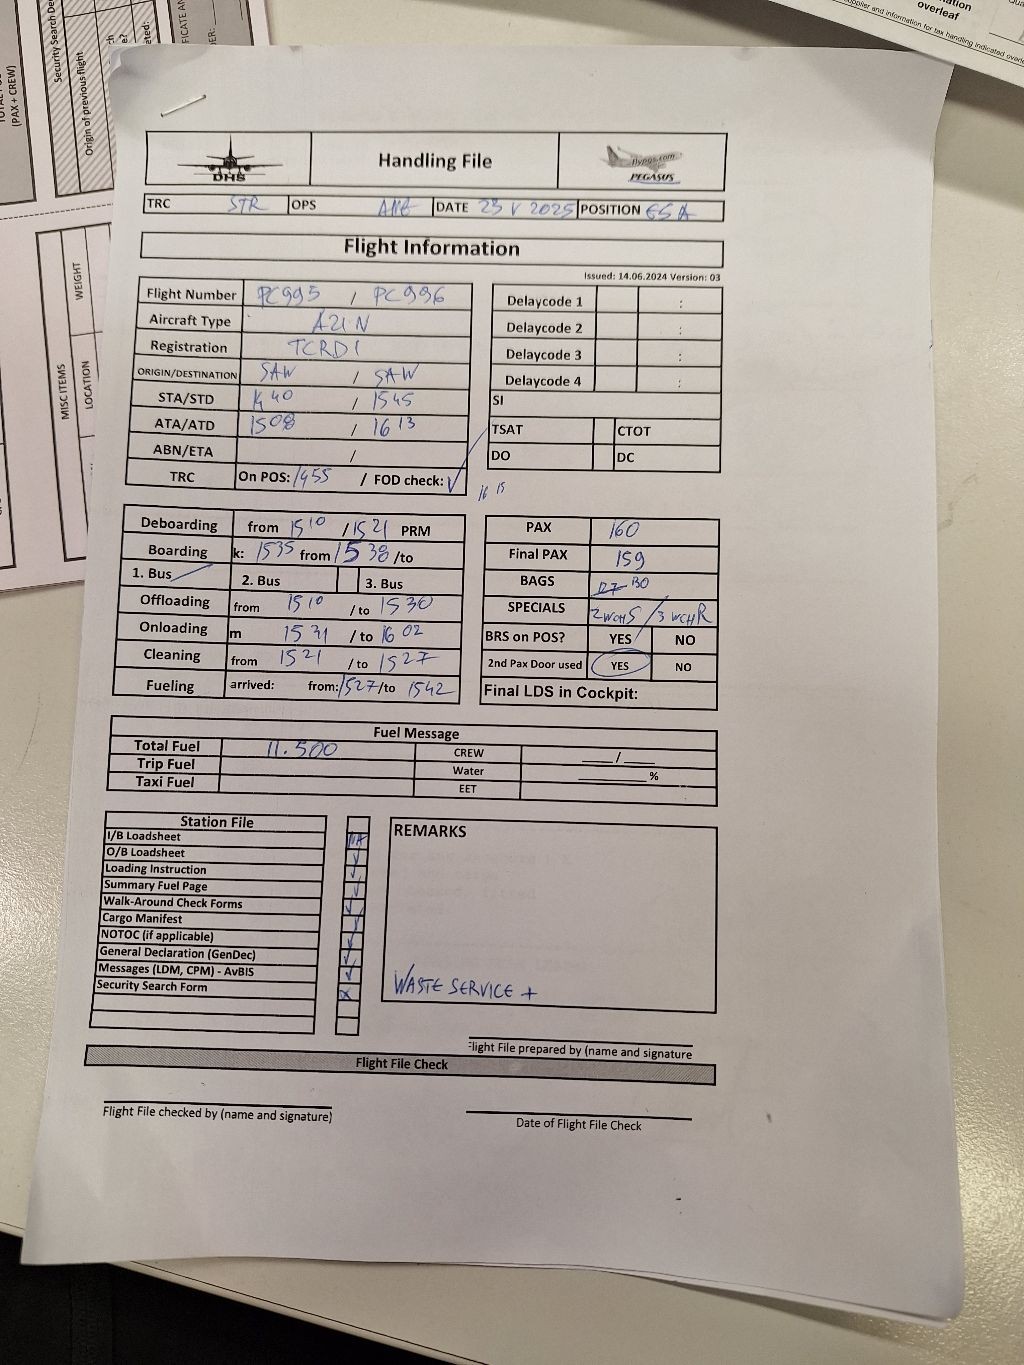 overleaf
supplier and information for tax handling indicated
(PAX + CREW)
Origin of previous flight
MISC ITEMS
LOCATION
WEIGHT
DHS
Handling File
flypgs.com
PEGASUS
TRC STR OPS DATE 23 V 2025 POSITION
Flight Information
Issued: 14.06.2024 Version: 03
Flight Number PC995 / PC996
Aircraft Type A21N
Registration TCRDI
ORIGIN/DESTINATION SAW / SAW
STA/STD 1440 / 1545
ATA/ATD 1508 / 1613
ABN/ETA /
TRC On POS: 1455 / FOD check: ✓
Delaycode 1 :
Delaycode 2 :
Delaycode 3 :
Delaycode 4 :
SI
TSAT CTOT
DO DC
1615
Deboarding from 1510 / 1521 PRM
Boarding k: 1535 from 1538 /to
1. Bus 2. Bus 3. Bus
Offloading from 1510 /to 1530
Onloading m 1531 /to 1602
Cleaning from 1521 /to 1527
Fueling arrived: from: 1527 /to 1542
PAX 160
Final PAX 159
BAGS 130
SPECIALS 2 WCHS / 3 WCHR
BRS on POS? YES NO
2nd Pax Door used YES NO
Final LDS in Cockpit:
Fuel Message
Total Fuel 11.500 CREW ___/___
Trip Fuel Water ______%
Taxi Fuel EET
Station File
I/B Loadsheet NA
O/B Loadsheet ✓
Loading Instruction ✓
Summary Fuel Page ✓
Walk-Around Check Forms ✓
Cargo Manifest ✓
NOTOC (if applicable) ✓
General Declaration (GenDec) ✓
Messages (LDM, CPM) - AvBIS ✓
Security Search Form x
REMARKS
WASTE SERVICE +
Flight File prepared by (name and signature
Flight File Check
Flight File checked by (name and signature)
Date of Flight File Check